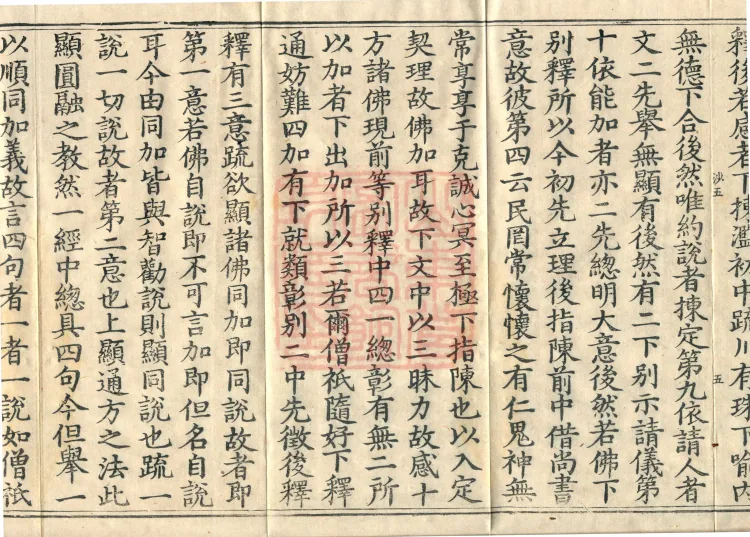 釋後若處者下揀濫初中疏川有珠下喻內
無德下合後然唯約說者揀定第九依請人者
文二先舉無顯有後然有二下別示請儀第
十依能加者亦二先總明大意後然若佛下
別釋所以今初先立理後指陳前中借尚書
意故彼第四云民罔常懷懷之有仁鬼神無
常享享于克誠心冥至極下指陳也以入定
契理故佛加耳故下文中以三昧力故感十
方諸佛現前等別釋中四一總彰有無二所
以加者下出加所以三若爾僧祇隨好下釋
通妨難四加有下就類彰別二中先徵後釋
釋有三意疏欲顯諸佛同加即同說故者即
第一意若佛自說即不可言加即但名自說
耳今由同加皆與智勸說則顯同說也疏一
說一切說故者第二意也上顯通方之法此
顯圓融之教然一經中總具四句今但舉一
以順同加義故言四句者一者一說如僧祇
五